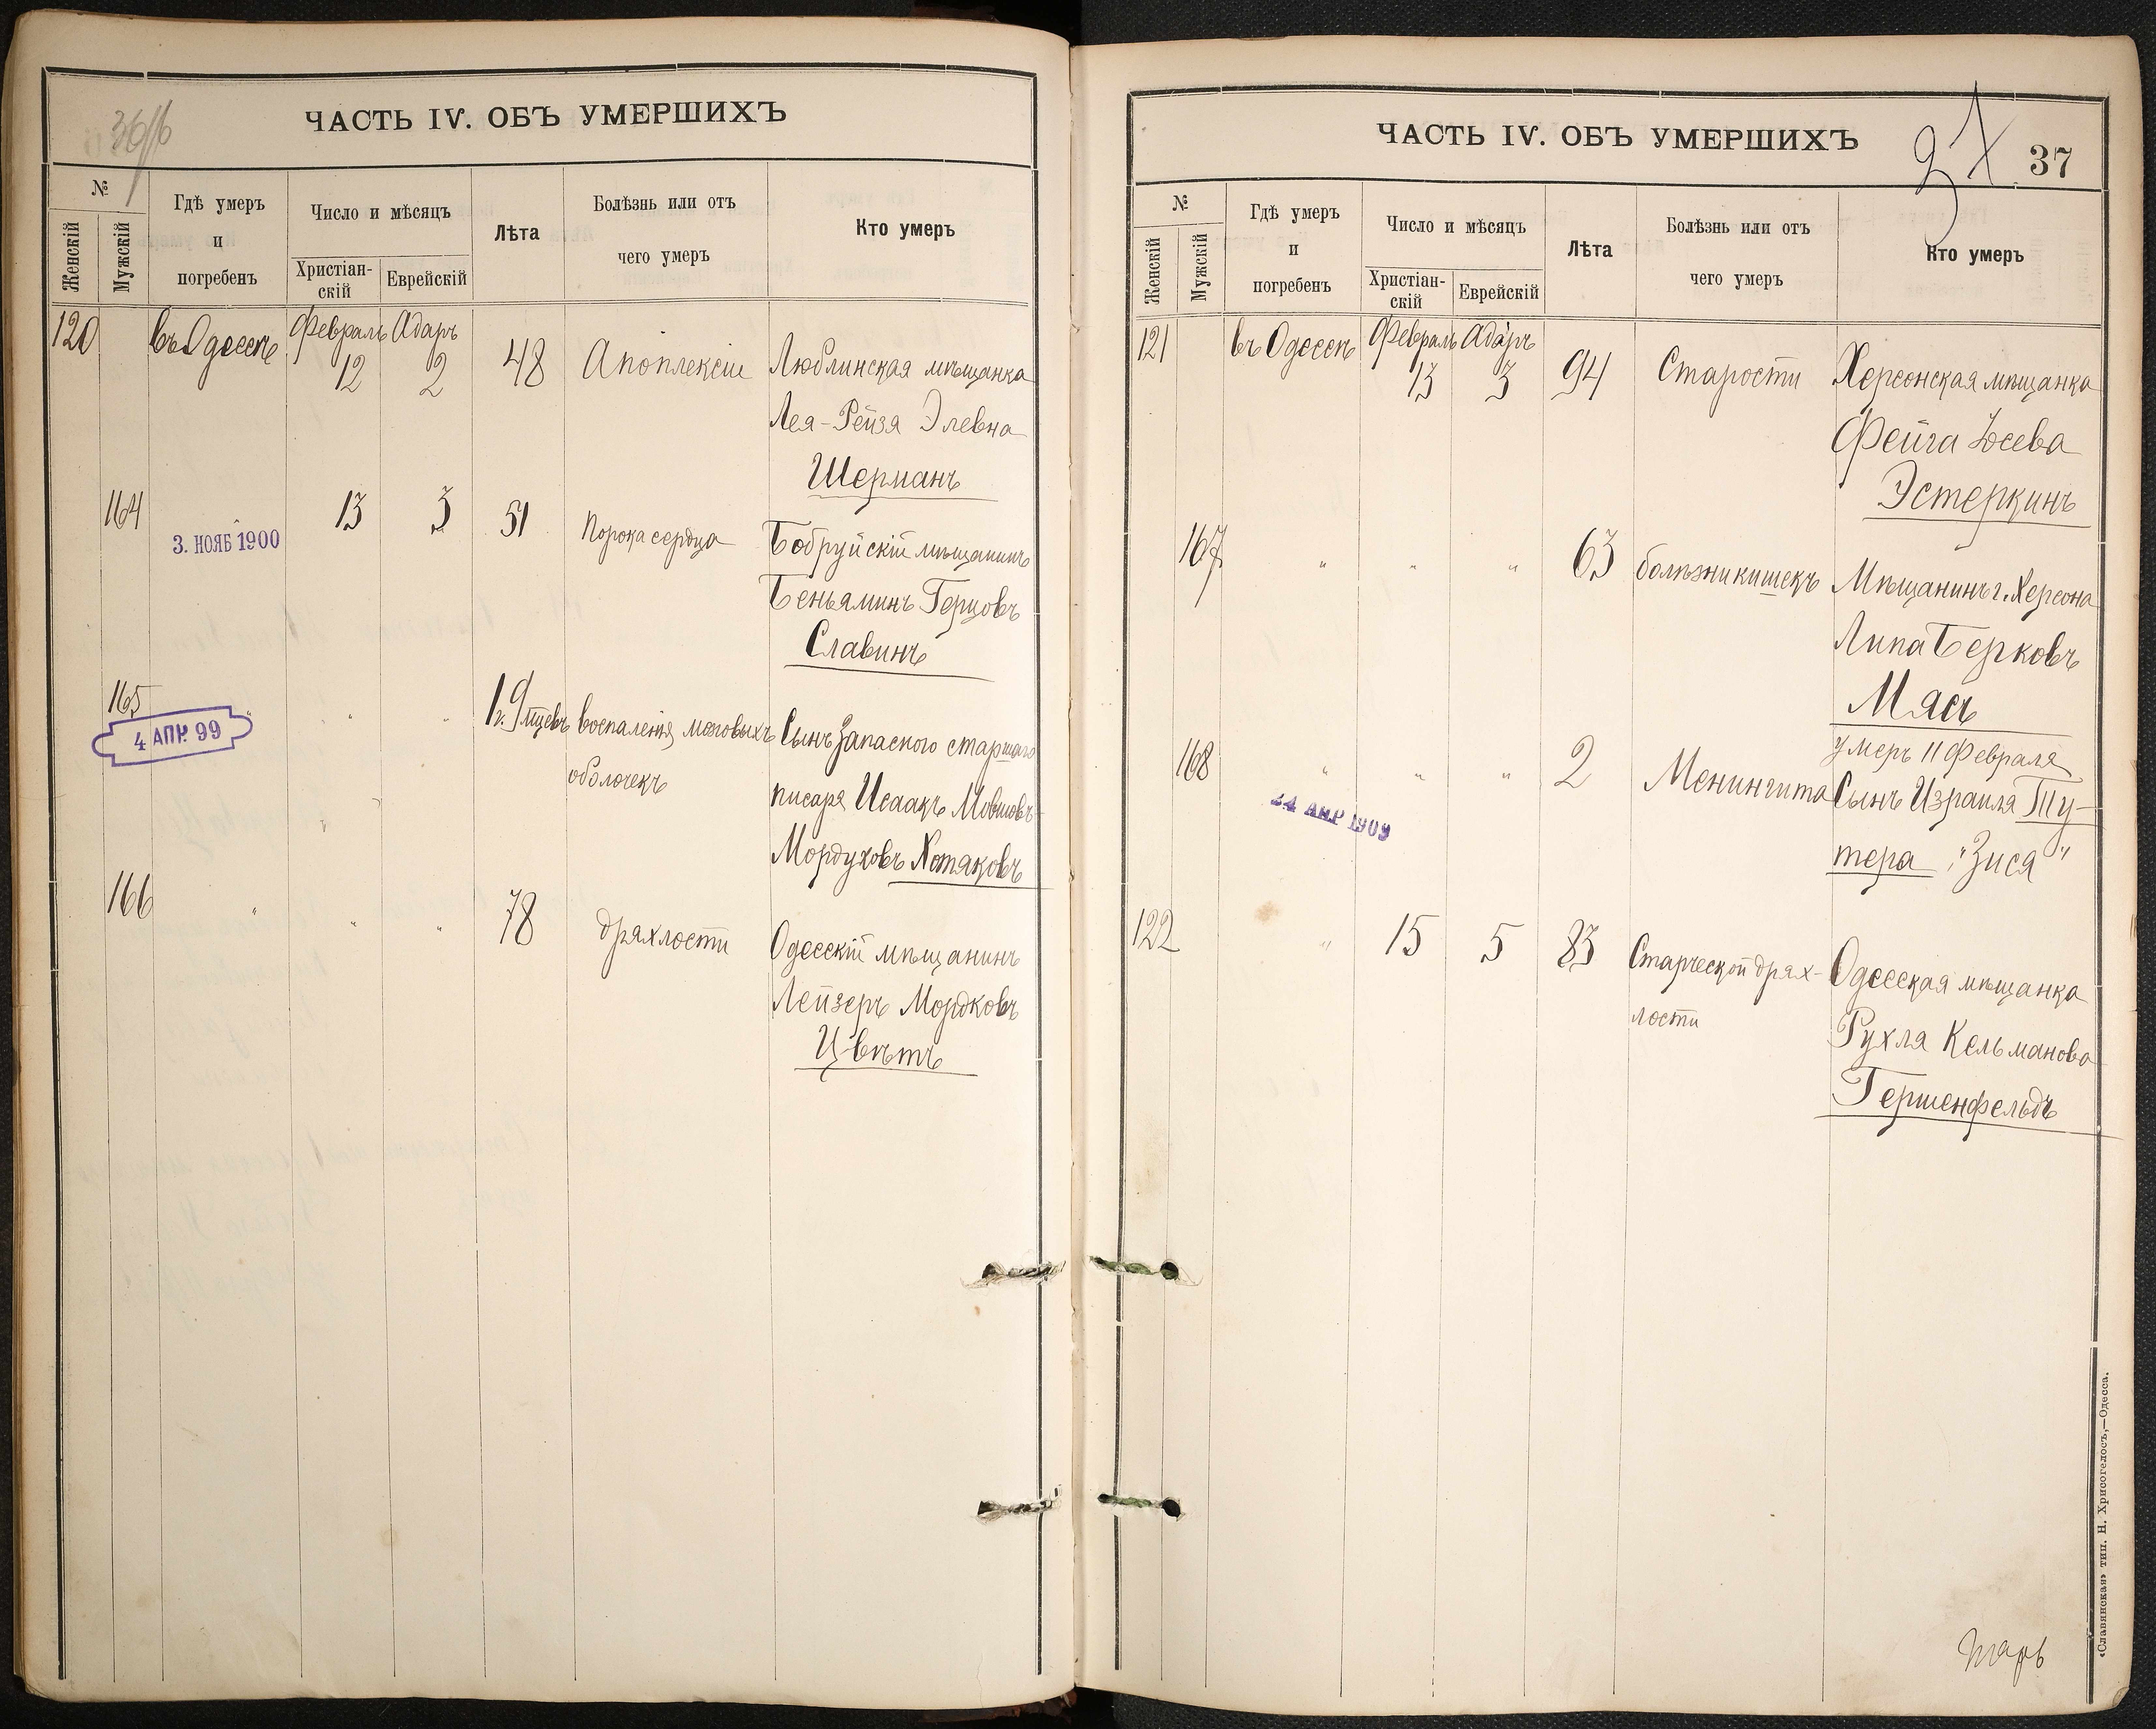 36/б
ЧАСТЬ IV. ОБЪ УМЕРШИХЪ
№
Женскій
Мужскій
Гдѣ умеръ
и
погребенъ
Число и мѣсяцъ
Христіан-
скій
Еврейскій
Лѣта
Болѣзнь или отъ
чего умеръ
Кто умеръ
120 въ Одессѣ Февраль Адаръ
12 2 48 Апоплексіи Люблинская мѣщанка
Лея-Рейзя Элевна
Шерманъ
164 13 3 51 Порока сердца Бобруйскій мѣщанинъ
3. НОЯБ 1900
Беньяминъ Герцовъ
Славинъ
165 " " " 1 г. 9 мцевъ воспаленія мозговыхъ Сынъ Запасного старшаго
4 АПР. 99
оболочекъ
писаря Исаакъ Мовшовъ
Мордуховъ Хотяковъ
166 " " " 78 дряхлости Одесскій мѣщанинъ
Лейзеръ Мордковъ
Цвѣтъ
ЧАСТЬ IV. ОБЪ УМЕРШИХЪ
37
37
№
Женскій
Мужскій
Гдѣ умеръ
и
погребенъ
Число и мѣсяцъ
Христіан-
скій
Еврейскій
Лѣта
Болѣзнь или отъ
чего умеръ
Кто умеръ
121 въ Одессѣ Февраль Адаръ
13 3 94 Старости Херсонская мѣщанка
Фейга Іосева
Эстеркинъ
167 " " " 63 болѣзни кишекъ Мѣщанинъ г. Херсона
Липа Берковъ
Мясъ
умеръ 11 Февраля
168 " " " 2 Менингита Сынъ Израиля Ту-
24 АПР 1909
тера "Зися"
122 " 15 5 83 Старческой дрях- Одесская мѣщанка
лости
Рухля Кельманова
Гершенфельдъ
«Славянская» тип. Н. Хрисогелосъ,—Одесса.